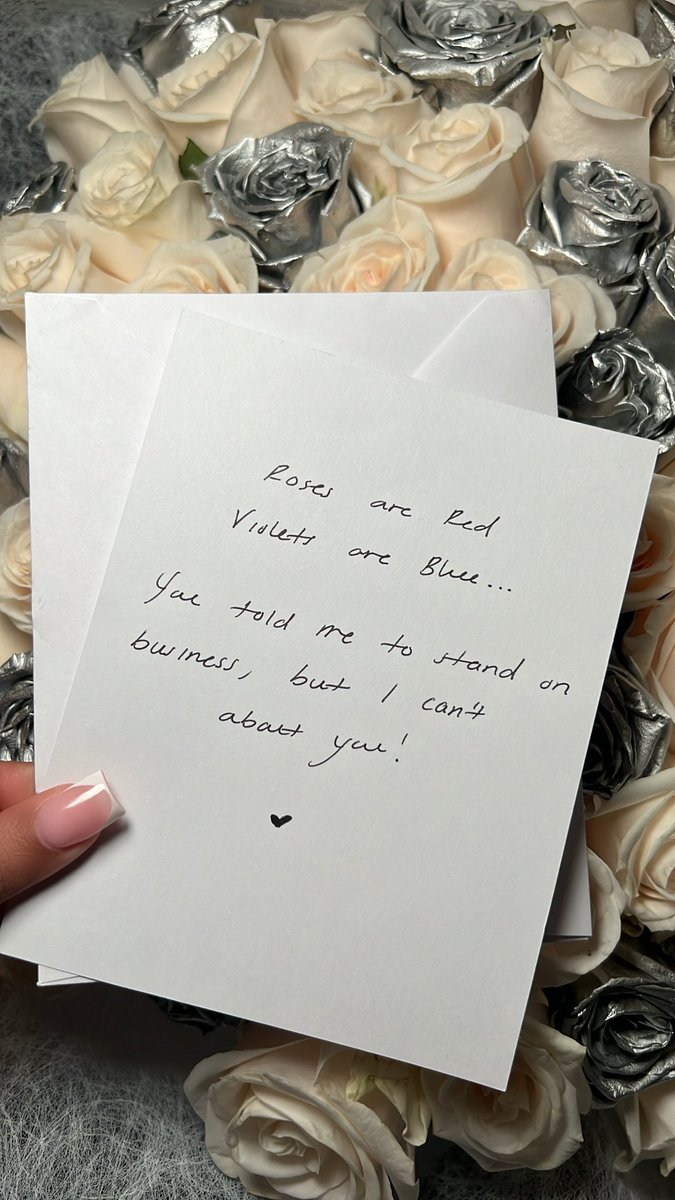 Roses are Red
Violets are Blue...
You told me to stand on
business, but I can't
about you!